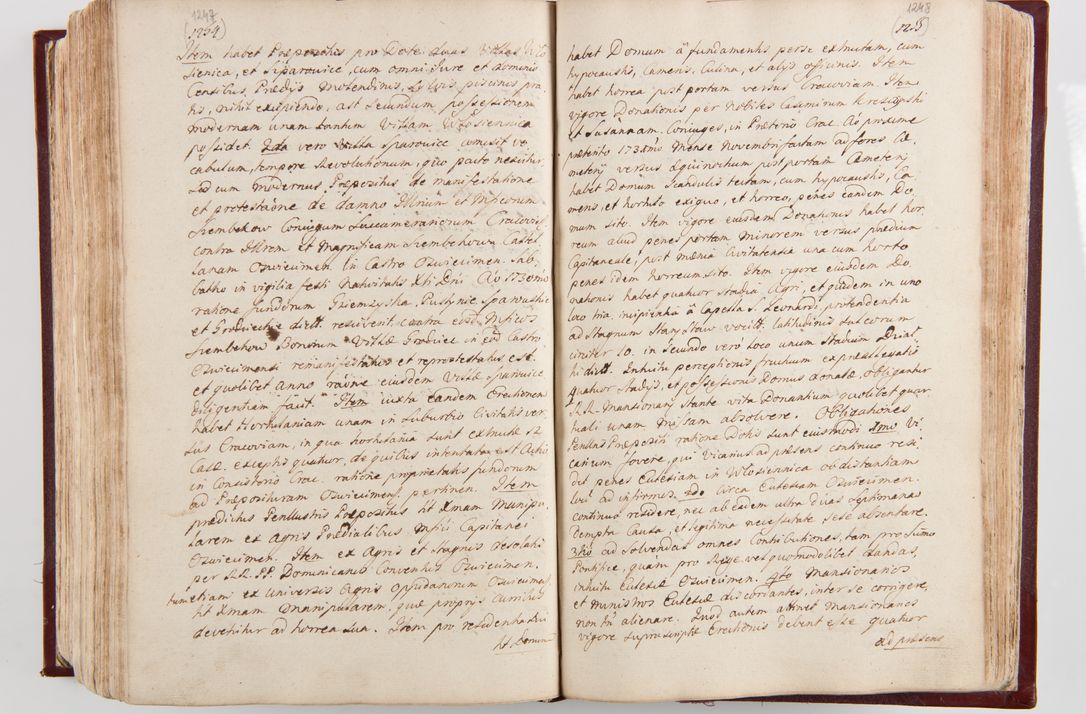 1247
1254
Item habet Præpositus pro Dote duas Villas Wło
sienica, et Sparowice, cum omni Jure et Dominio
Censibus, Prædijs Molendinis, Sylvis piscinis pra
tis, nihil excipiendo, ast secundum possessionem
modernam unam tantum Villam Włosiennica
possidet. 2da vero Villa Sparowice amisit vo
cabulum, tempore Revolutionum, quo pacto nescitur,
sed cum modernus Præpositus de manifestatione
et protestaõne de damno Illrium et Mficorum
Szembekow Coniugum Succamerariorum Cracovien
contra Illrem et Magnificam Szembekowa Castel
lanam Oswiecimen. in Castro Oswiecimen. Sab
batho in vigilia festi Nativitatis Xti Dni Aõ 1730mo
ratione fundorum Sparowskie
et Grodzieckie dict. rescivent, contra eosd. Mficos
Szembekow Bonorum Villæ Grodziec in eod Castro
Oswiecimensi remanifestatus et reprotestatus est
et quolibet anno raõne eiusdem Villæ Sparowice
diligentiam facit. Item iuxta eandem Erectionem
habet Hortulaniam unam in Suburbio Civitatis ver
sus Cracoviam, in qua hortulania sunt extructæ 12
Casæ, exceptis quatuor, de quibus intentata est Actio
in Consistorio Crac. ratione proprietatis fundorum
ad Præposituram Oswiecimen. pertinen. Item
prædictus Perillustris Præpositus ht Xmam Manipu
larem ex Agris Prædialibus Mfici Capitanei
Oswiecimen. Item ex Agris et Stagnis desolatis
per RR. PP. Dominicanos Conventus Oswiecimen.
tum etiam ex Universis Agris Oppidanorum Oswiecimen.
ht Xmam manipularem, quæ proprijs Curribus
devehitur ad horrea sua. Item pro residentia sui
ht Domum
1248
1255
habet Domum à fundamentis per se extructam, cum
hypocaustis, Cameris, Culina, et alijs officinis. Item
habet horrea post portam versus Cracoviam. Item
vigore Donationis per Nobiles Casimirum Krescynski
et Susannam. Coniuges, in Prætorio Crac. Aõ proxime
præterito 1738mo Mense Novembri factam ad fores Cæ
meterij versus Aquilonem post portam Cæmeterij
habet Domum Scandulis tectam, cum hypocaustis, Ca
meris, et hortulo exiguo, et horreo, penes eandem Do
mum sito. Item vigore eiusdem Donationis habet hor
reum aliud penes portam minorem versus prædium
Capitaneale, post mænia Civitatensia una cum horto
penes idem horreum sito. Item vigore eiusdem Do
nationis habet quatuor stadia Agri, et quidem in uno
loco tria, incipientia à Capella S. Leonardi, protendentia
ad Stagnum Stary Staw vocitt. latitudinis sulcorum
circiter 10. in secundo verò loco unum Stadium
dict. Intuitu perceptionis fructuum expræssatis
quatuor Stadijs, et possessionis Domus donatæ obligantur
RR. Mansionarij stante vita Donantium quolibet quar
tuali unam Missam absolvere. Obligationes
Perillus Præpositi ratione Dotis sunt eiusmodi 1mo Vi
carium fovere, qui Vicarius ad præsens continuo resi
det penes Ecclesiam in Wlosiennica ob distantiam
loci ad infirmos. 2do Circa Ecclesiam Oswiecimen.
continuo residere, nec ab eadem ultra duas Septimanas
dempta Causa, et legitima necessitate sese absentare.
3tio ad solvendas omnes Contributiones, tam pro Summo
Pontifice, quam pro Rege, vel quomodolibet dandas,
intuitu Ecclesiæ Oswiecimen. 4to Mansionarios
et ministros Ecclesiæ discordantes, inter se corrigere,
non tn alienare. Quod autem attinet Mansionarios
vigore suprascriptæ Erectionis debent esse quatuor
ad præsens